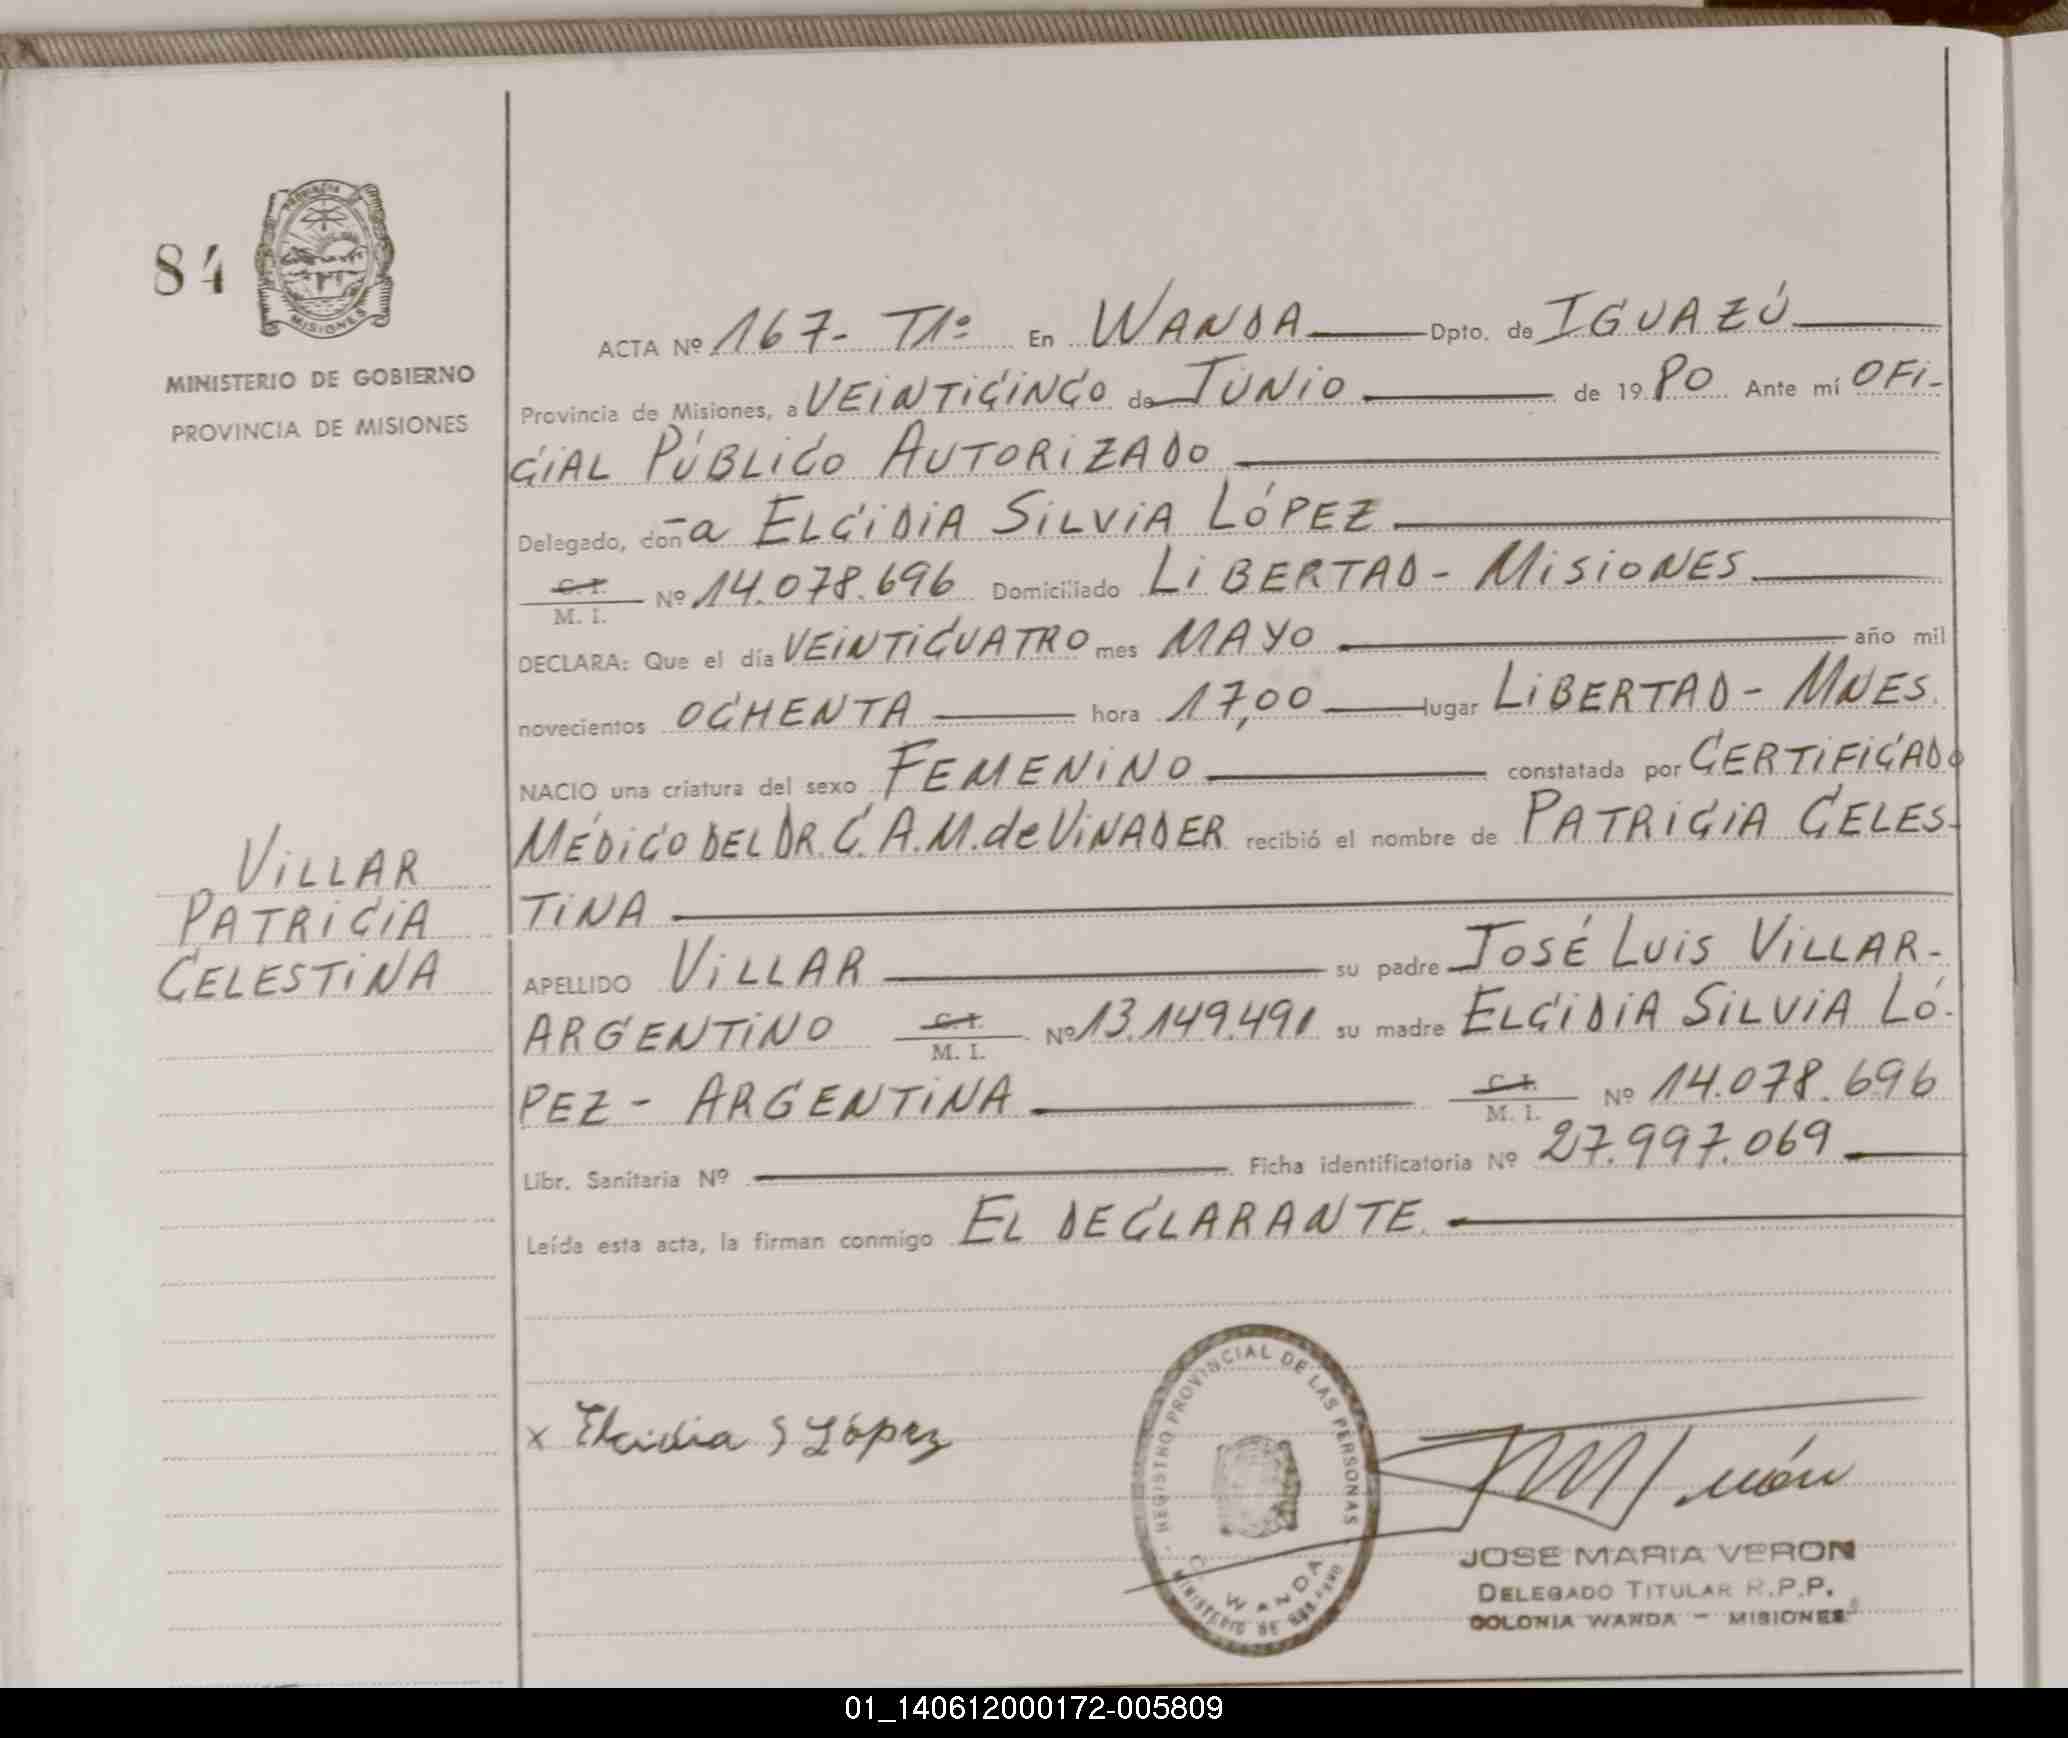 84
PROVINCIA
MISIONES
MINISTERIO DE GOBIERNO
PROVINCIA DE MISIONES
VILLAR
PATRICIA
CELESTINA
ACTA Nº 167- T1º En WANDA Dpto. de IGUAZÚ
Provincia de Misiones, a VEINTICINCO de JUNIO de 19 80 Ante mí OFI-
CIAL PÚBLICO AUTORIZADO
Delegado, doña ELCIDIA SILVIA LÓPEZ
C. I.
M. I. Nº 14.078.696 Domiciliado LIBERTAD - MISIONES
DECLARA: Que el día VEINTICUATRO mes MAYO año mil
novecientos OCHENTA hora 17,00 lugar LIBERTAD - MNES.
NACIO una criatura del sexo FEMENINO constatada por CERTIFICADO
MÉDICO DEL DR. C. A. M. de VINADER recibió el nombre de PATRICIA CELES-
TINA
APELLIDO VILLAR su padre JOSÉ LUIS VILLAR-
ARGENTINO C. I. M. I. Nº 13.149.491 su madre ELCIDIA SILVIA LÓ-
PEZ - ARGENTINA C. I. M. I. Nº 14.078.696
Libr. Sanitaria Nº Ficha identificatoria Nº 27.997.069
Leída esta acta, la firman conmigo EL DECLARANTE.
x Elcidia S López
REGISTRO PROVINCIAL DE LAS PERSONAS
WANDA
MINISTERIO DE GOBIERNO
JOSE MARIA VERON
DELEGADO TITULAR R.P.P.
COLONIA WANDA - MISIONES
01_140612000172-005809